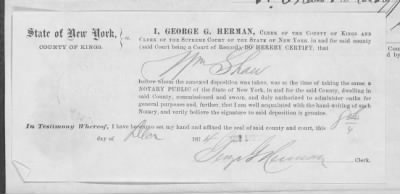 State of New York, } ss. I, GEORGE G. HERMAN, CLERK OF THE COUNTY OF KINGS AND
COUNTY OF KINGS. CLERK OF THE SUPREME COURT OF THE STATE OF NEW YORK, in and for said county
(said Court being a Court of Record) DO HEREBY CERTIFY, that
Wm Shaw
before whom the annexed deposition was taken, was at the time of taking the same, a
NOTARY PUBLIC of the State of New York, in and for the said County, dwelling in
said County, commissioned and sworn, and duly authorized to administer oaths for
general purposes and, further, that I am well acquainted with the hand-writing of such
Notary, and verily believe the signature to said deposition is genuine.
In Testimony Whereof, I have hereunto set my hand and affixed the seal of said county and court, this
day of 187
Geo G Herman
Clerk.